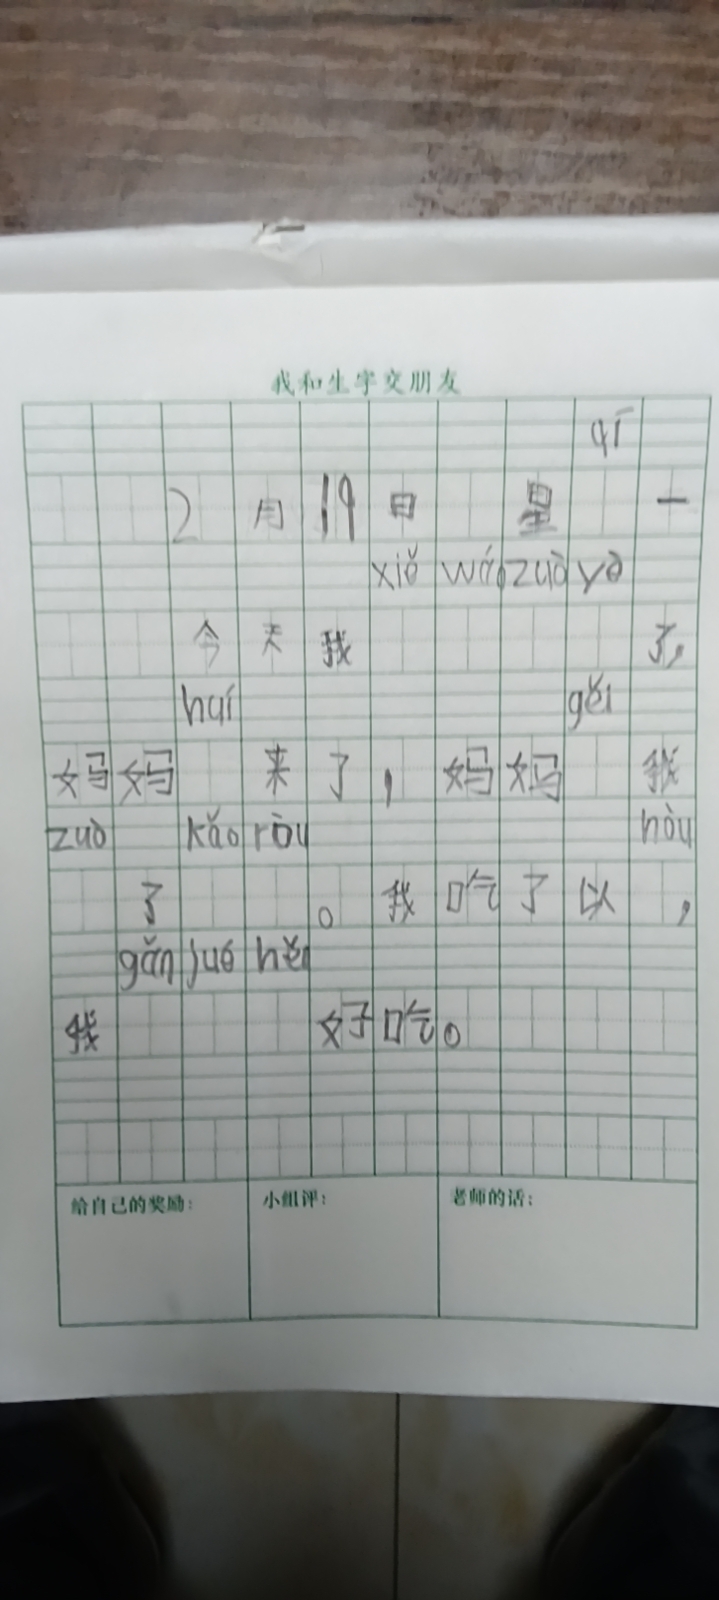 我和生字交朋友
qī
2月19日 星 一
xiě wán zuò yè
今天我 了,
huí gěi
妈妈 来了,妈妈 我
zuò kǎo ròu hòu
了 。我吃了以 ,
gǎn jué hěn
我 好吃。
给自己的奖励: 小组评: 老师的话: